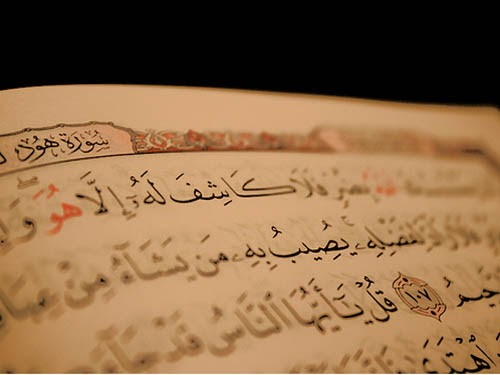 سُورَةُ هُود
بِضُرٍّ فَلَا كَاشِفَ لَهُۥٓ إِلَّا هُوَ
لِفَضْلِهِۦ يُصِيبُ بِهِۦ مَن يَشَآءُ مِنْ
حِيمُ ١٠٧ قُلْ يَـٰٓأَيُّهَا ٱلنَّاسُ قَدْ جَآءَ
ٱهْتَدَىٰ